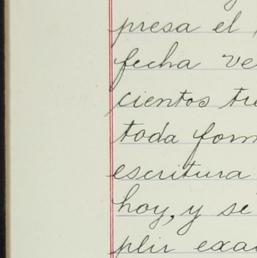 presa el
fecha ve
cientos tre
toda form
escritura
hoy, y se
plir exac